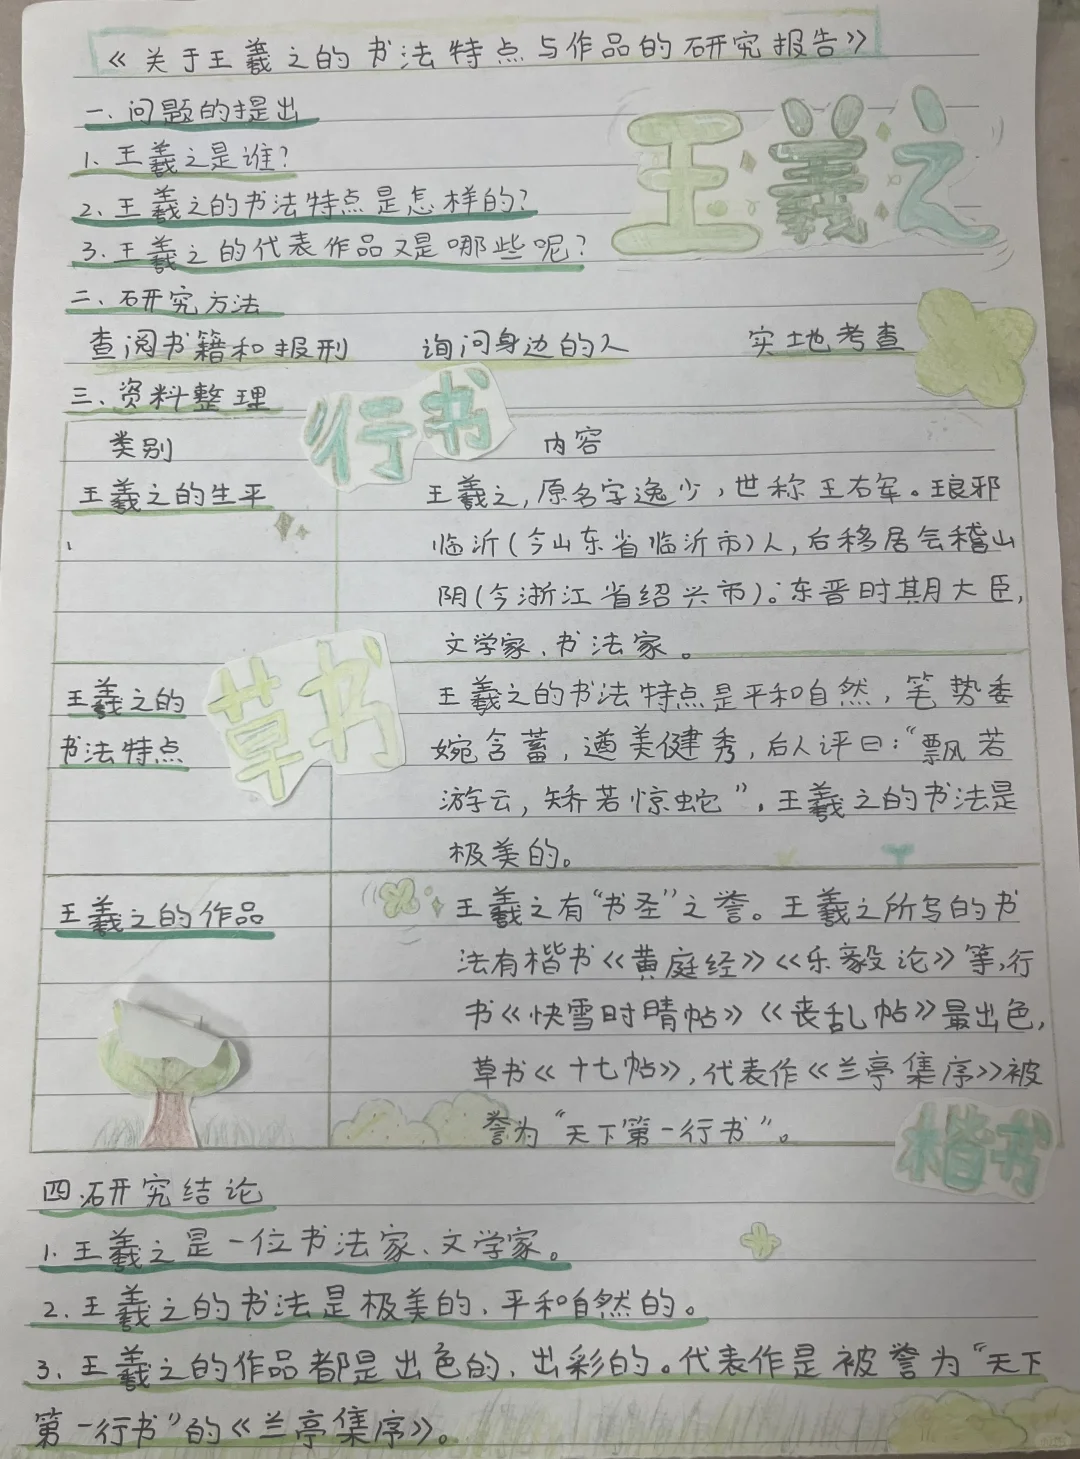 《关于王羲之的书法特点与作品的研究报告》
一、问题的提出
王羲之
1、王羲之是谁？
2、王羲之的书法特点是怎样的？
3、王羲之的代表作品又是哪些呢？
二、研究方法
查阅书籍和报刊 询问身边的人 实地考查
三、资料整理
行书
类别 内容
王羲之的生平 王羲之，原名字逸少，世称王右军。琅邪
临沂（今山东省临沂市）人，后移居会稽山
阴（今浙江省绍兴市）。东晋时期大臣，
文学家、书法家。
草书
王羲之的 王羲之的书法特点是平和自然，笔势委
书法特点 婉含蓄，遒美健秀，后人评曰：“飘若
游云，矫若惊蛇”，王羲之的书法是
极美的。
王羲之的作品 王羲之有“书圣”之誉。王羲之所写的书
法有楷书《黄庭经》《乐毅论》等，行
书《快雪时晴帖》《丧乱帖》最出色，
草书《十七帖》，代表作《兰亭集序》被
誉为“天下第一行书”。
楷书
四、研究结论
1、王羲之是一位书法家、文学家。
2、王羲之的书法是极美的、平和自然的。
3、王羲之的作品都是出色的、出彩的。代表作是被誉为“天下
第一行书”的《兰亭集序》。